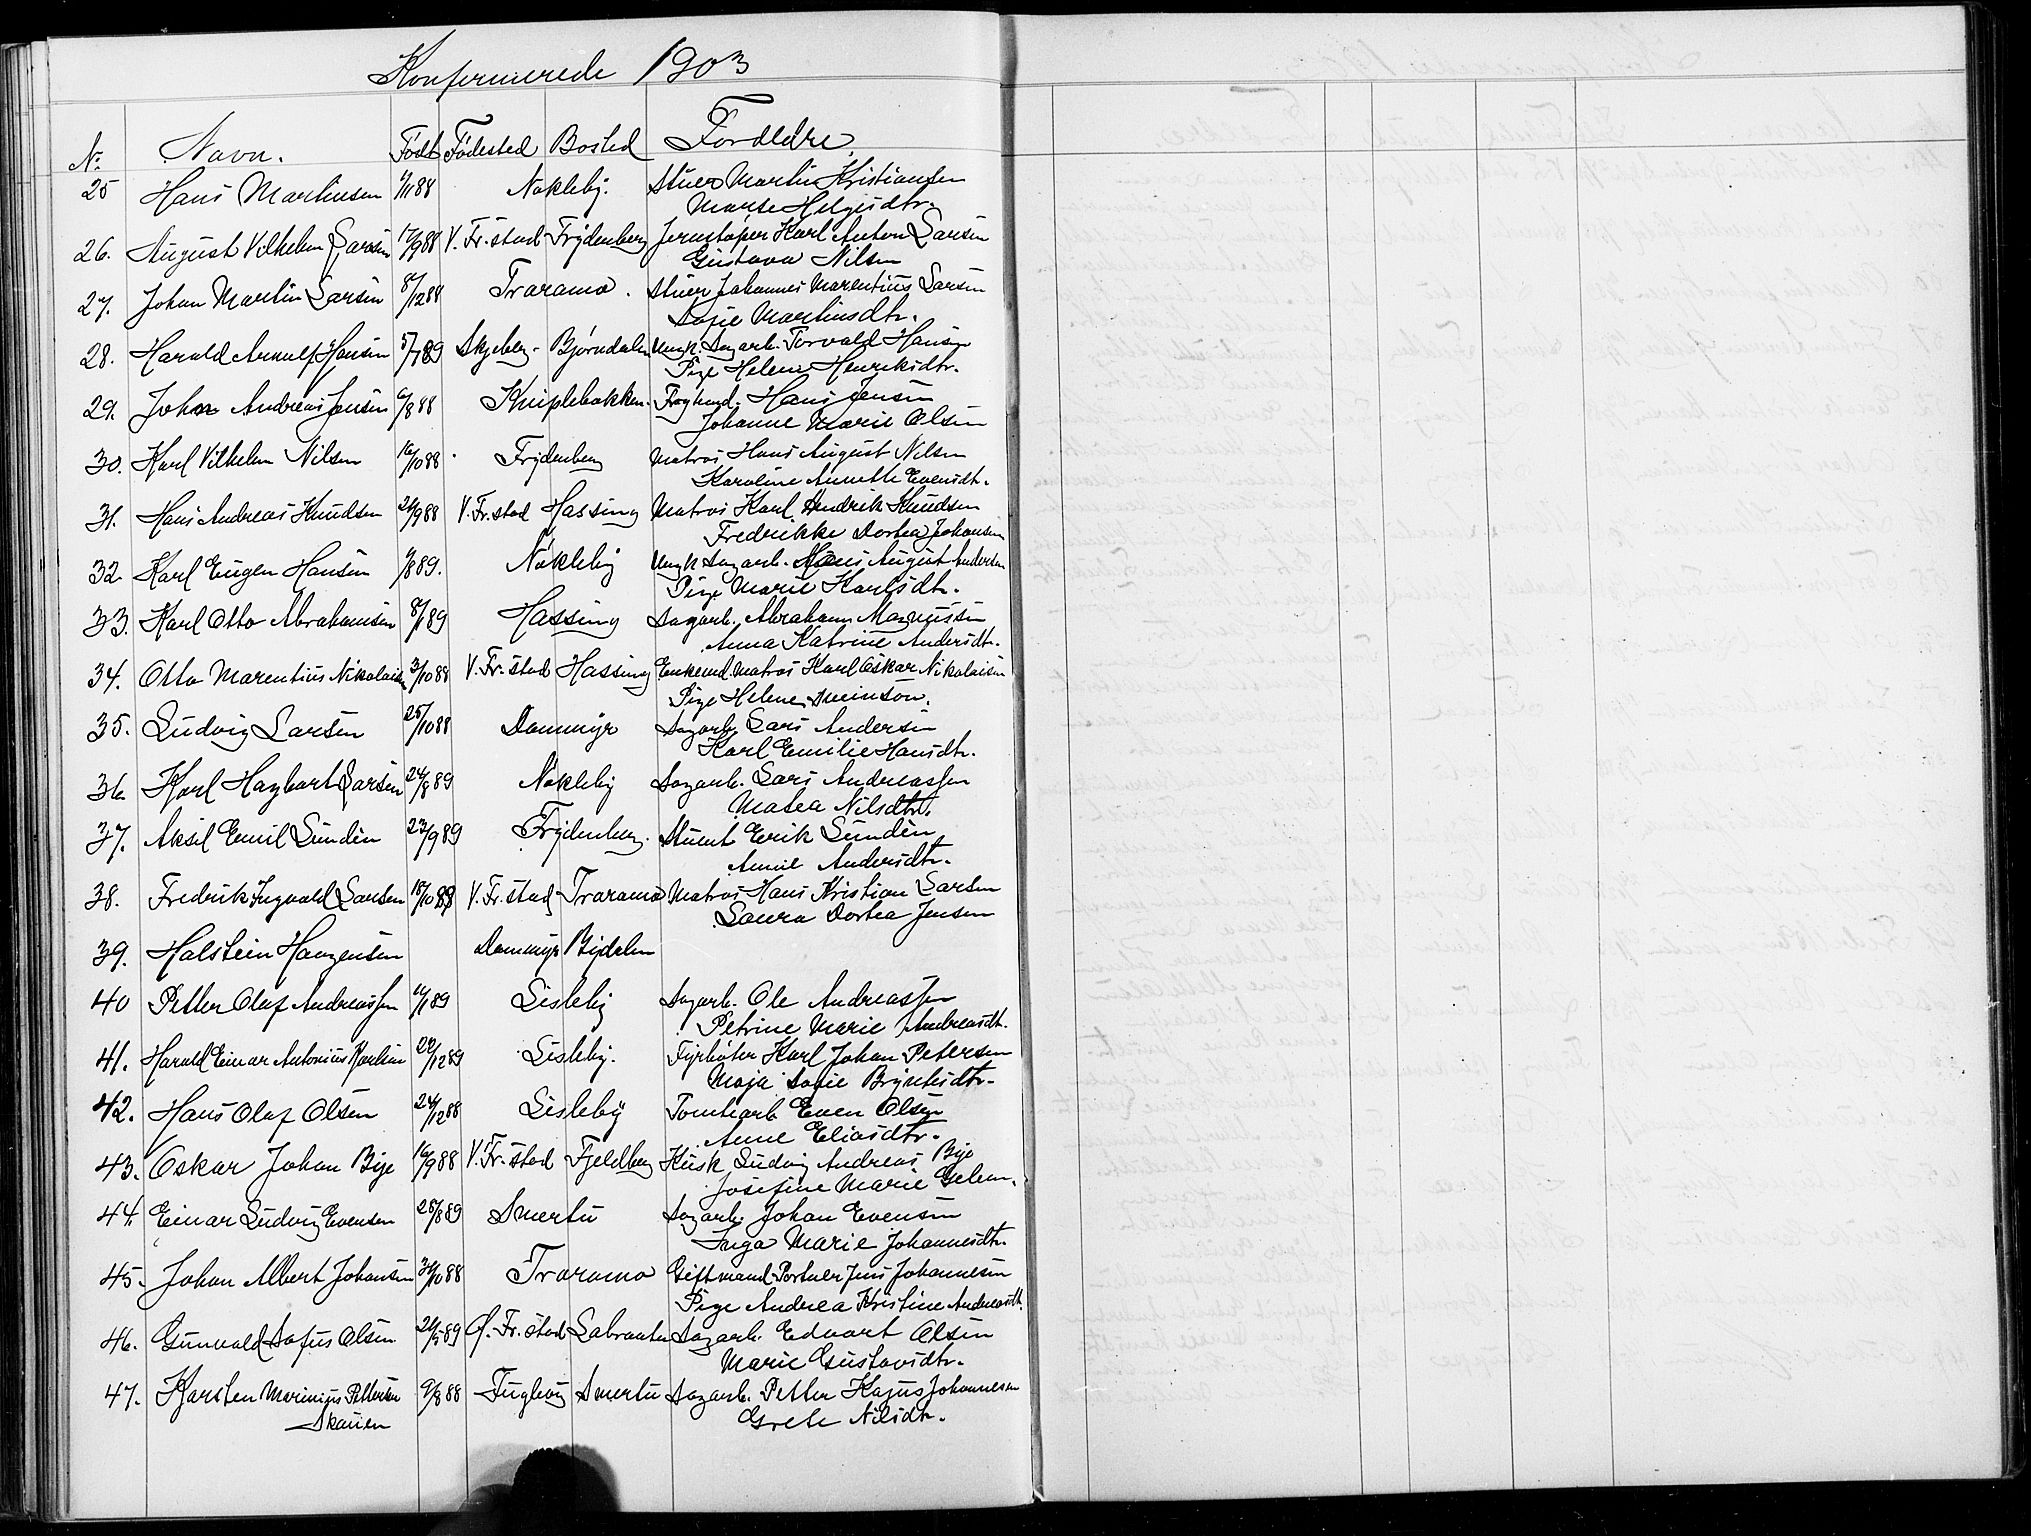 Konfirmerede 1903
No. Navn. Født Fødested Bosted Forældre
25 Hans Martinsen /11 88 Nøkleby. Stuer Martin Kristiansen
Marte Helgesdtr.
26. August Vilhelm Larsen 17/9 88 V. Fr.stad Frydenberg Jernstøper Karl Anton Larsen
Gustava Nilsen
27. Johan Martin Larsen 8/12 88 Traramo. Stuer Johannes Marentius Larsen
Sofie Martinsdtr.
28. Harald Arnulf Hansen 5/7 89 Skjeberg Bjørndalen Ungk. Sagarb. Torvald Hansen
Pige Helene Henriksdtr.
29. John Andreas Jensen 6/8 88 Kniplebakken. Hans Jensen
Johanne Marie Olsen
30. Karl Vilhelm Nilsen 16/10 88 Frydenberg Matros Hans August Nilsen
Karoline Annette Evensdt.
31. Hans Andreas Knudsen 26/9 88 V. Fr.stad Hassing Matros Karl Hendrik Knudsen
Fredrikke Dortea Johansen
32. Karl Eugen Hansen /8 89. Nøkleby Ungk Sagarb. Hans August Andersen
Pige Marie Karlsdtr.
33. Karl Otto Abrahamsen 8/1 89 Hassing Sagarb. Abraham Magnussen
Anna Katrine Andersdtr.
34. Otto Marentius Nikolaisen 3/10 88 V. Fr.stad Hassing Enkemd. Matros Karl Oskar Nikolaisen
Pige Helene Sveinson.
35. Ludvig Larsen 25/10 88 Dammyr Sagarb. Lars Andersen
Karl Emilie Hansdtr.
36. Karl Hagbart Larsen 24/8 89 Nøkleby Sagarb. Lars Andreassen
Matea Nilsdtr.
37. Aksel Emil Sundèn 23/9 89 Frydenberg. Stuert Erik Sundèn
Annie Andersdtr.
38. Fredrik Ingvald Larsen 18/10 88 V. Fr.stad Traramo Matros Hans Kristian Larsen
Laura Dortea Jensen
39. Halstein Haagensen Dammyr Bydalen
40 Petter Olaf Andreassen /1 89 Lisleby Sagarb. Ole Andreassen
Petrine Marie Andreasdt.
41. Harald Einar Antonius Karlsen 20/12 89 Lisleby. Fyrbøter Karl Johan Petersen
Maja Sofie Bryntesdtr.
42. Hans Olaf Olsen 24/12 88 Lisleby Tomtearb. Even Olsen
Anne Eliasdtr.
43. Oskar Johan Bye 16/9 88 V. Fr.stad Fjeldberg Kusk Ludvig Andreas Bye
Josefine Marie
44. Einar Ludvig Evensen 25/8 89 Smertu Sagarb. Johan Evensen
Inga Marie Johannesdtr.
45. Johan Albert Johansen 30/10 88 Traramo Giftmand Portner Jens Johannesen
Pige Andrea Kristine Andreasdt.
46. Gunvald Sofus Olsen 20/5 89 Ø. Fr.stad Labraaten Sagarb. Edvart Olsen
Marie Gustavsdtr.
47. Karsten Marinius Pettersen 9/8 88 Fuglevig Smertu Sagarb. Petter Kajus Johannesen
Skauen Grete Nilsdtr.